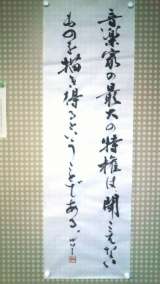 音楽家の最大の特権は聞こえない
ものを描き得るということである